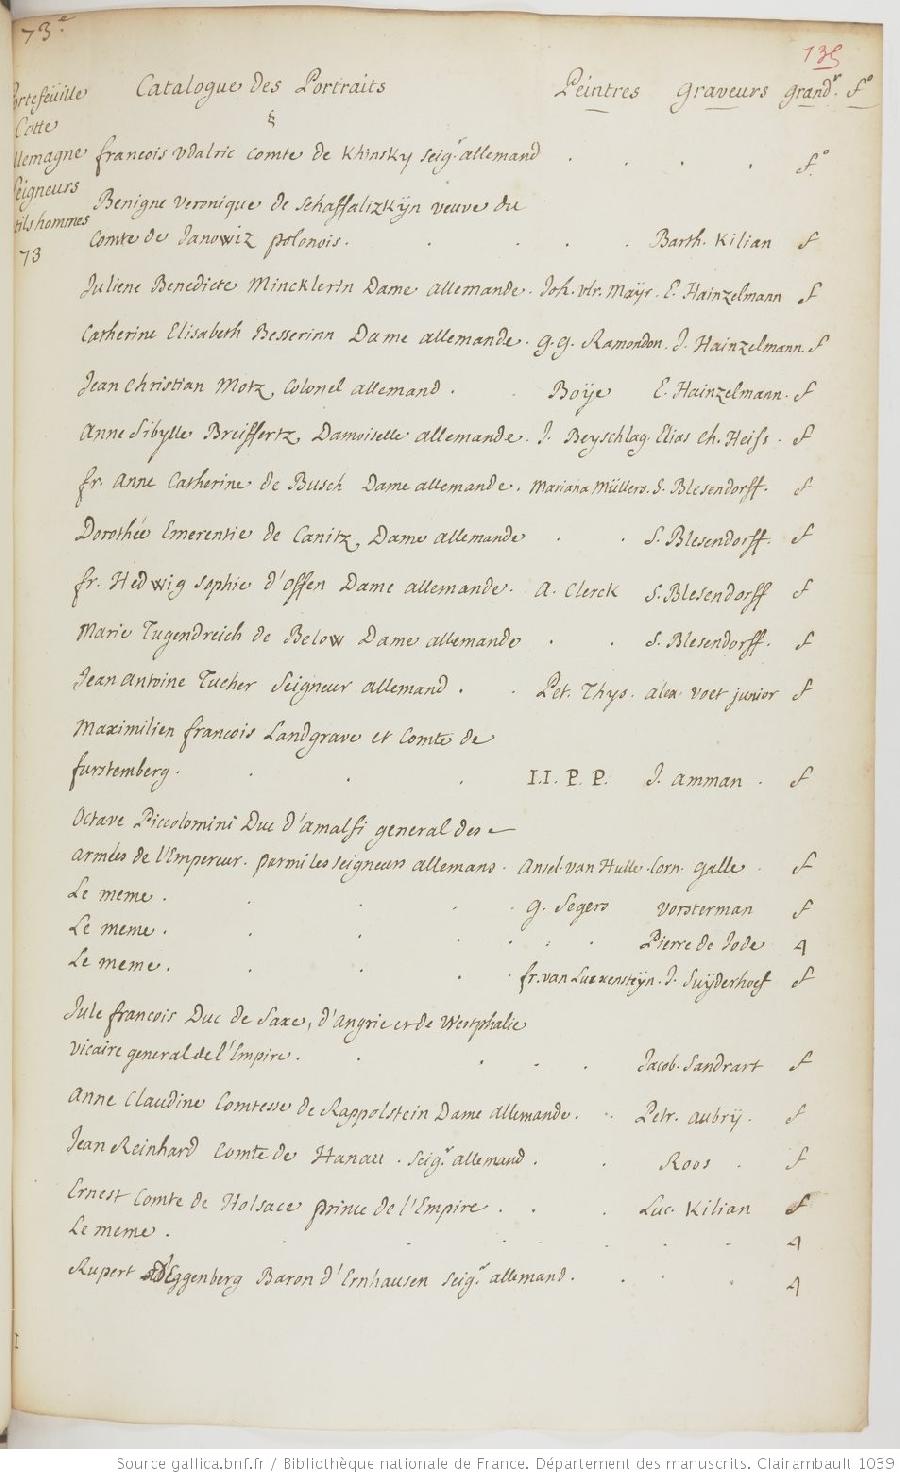 73e
135
Catalogue des Portraits Peintres graveurs grandr. fo
ortefeüille
Cotte
llemagne
Seigneurs
tilshommes
73
§
francois Udalric comte de Khinsky seigr. allemand . . . . fo.
Benigne veronique de Schaffalizkÿn veuve du
Comte de Janowiz polonois. . . . . Barth. Kilian f
Juliene Benedicte Mincklerin Dame allemande. Joh. vlr. Maÿr. E. Hainzelmann f
Catherine Elisabeth Besserinn Dame allemande. g. g. Ramondon. J. Hainzelmann. f
Jean Christian Motz, Colonel allemand . . Boÿe E. Hainzelmann. f
Anne Sibylle Breiffertz Damoiselle allemande. J. Beyschlag. Elias Ch. Heiss . f
fr. Anne Catherine de Busch Dame allemande. Mariana Müllers. S. Blesendorff. f
Dorothée Emerentie de Canitz, Dame allemande . . S. Blesendorff. f
fr. Hedwig Sophie d'Offen Dame allemande. A. Clerck S. Blesendorff f
Marie Tugendreich de Below Dame allemande . . S. Blesendorff. f
Jean Antoine Tucher Seigneur allemand . . Pet. Thys. alex. voet junior f
Maximilien francois Landgrave et Comte de
furstemberg. . . . I.I. P. P. J. Amman . f
Octave Piccolomini Duc d'amalfi general des
armées de l'Empereur. parmi les seigneurs allemans. Ansel. van Hulle. Corn. galle . f
Le meme . . . . . g. Segers Vorsterman f
Le meme . . . . . . Pierre de Jode 4
Le meme . . . . . fr. van Luexensteÿn. J. Suÿderhoef f
Jule francois Duc de Saxe, d'Angrie et de Westphalie
vicaire general de l'Empire. . . . . Jacob. Sandrart f
Anne Claudine Comtesse de Rappolstein Dame allemande. . . Petr. aubrÿ. f
Jean Reinhard Comte de Hanau . Seigr. allemand . . Roos . f
Ernest Comte de Holsace prince de l'Empire . . . Luc. Kilian f
Le meme . . . . . . . 4
Rupert d'Eggenberg Baron d'Ernhausen seigr. allemand. . . . 4
Source gallica.bnf.fr / Bibliothèque nationale de France. Département des manuscrits. Clairambault 1039